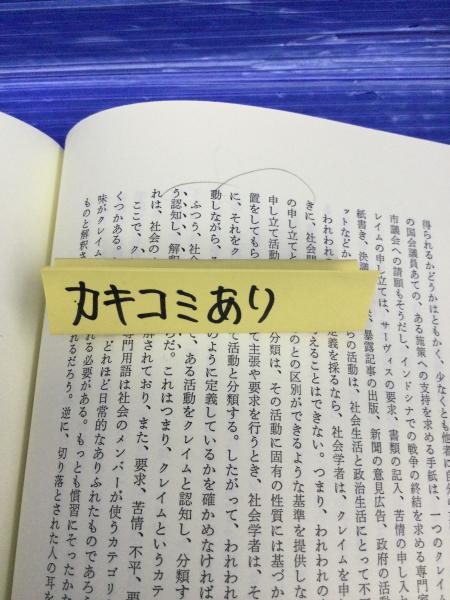 得られるかどうかはともかく、少なくとも他者に自分の
の国会議員あての、ある施策への支持を求める手紙は、一つのクレイム
市議会への請願もそうだし、インドシナでの戦争の終結を求める専門家
レイムの申し立ては、サーヴィスの要求、書類の記入、苦情の申し入れ
紙書き、決議
暴露記事の出版、新聞の意見広告、政府の活動
ットなどか
らの活動は、社会生活と政治生活にとって不
われわれ
定義を採るなら、社会学者は、クレイムを申し
きに、社会問
えることはできない。つまり、われわれの
の申し立てと
のとの区別ができるような基準を提供しな
申し立て活動
分類は、その活動に固有の性質には基づか
置をしてもら
て主張や要求を行うとき、社会学者は、そ
に、それをク
て活動と分類する。したがって、われわれ
動しながら、
のように定義しているかを確かめなければ
ふつう、社会
、ある活動をクレイムと認知し、分類す
う認知し、解釈
だ。これはつまり、クレイムというカテ
れは、社会の
解されており、また、要求、苦情、不平、要
ここで、ク
専門用語は社会のメンバーが使うカテゴリ
くつかある。
どれほど日常的なありふれたものであろう
味がクレイム
れる必要がある。もっとも慣習にそったかた
ものと解釈さ
れるだろう。逆に、切り落とされた人の耳を
カキコミあり